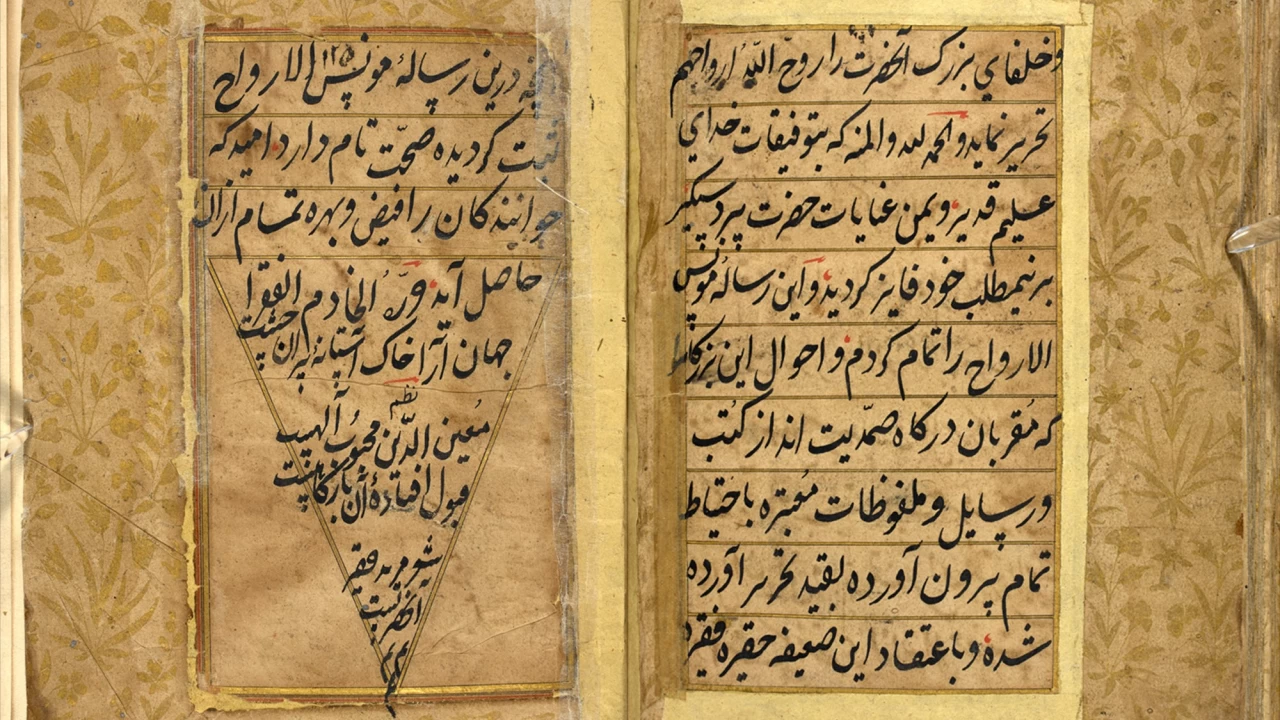 وخلفاي بزرك آنحضرت را روح الله ارواحهم
تحرير نمايد والحمد لله والمنه كه بتوفيقات خداي
عليم قدير ويمن عنايات حضرت پير دستكير
برين مطلب خود فايز كرديد واين رسالهٔ مونس
الارواح را تمام كردم واحوال اين بزركانرا
كه مُقربان دركاه صمّديت اند از كتُب
ورسايل وملفوظات مُعتبره باحتياط
تمام بيرون آورده بقيد تحرير آورده
شده وباعتقاد اين ضعيفه حقيره فقيره
درين رسالهٔ مونس الارواح
١٢٥
ثبت كرديده صحّت تام دارد اميد كه
خوانندكان را فيض وبهره تمام ازان
حاصل آيد ورّهُ الخادم الفقرا
جهان آرا خاك آستانه پيران چشت
نظم
مُعين الدّين محبُوب آلهيست
قبول افتادهٔ آن باركاهيست
فقير